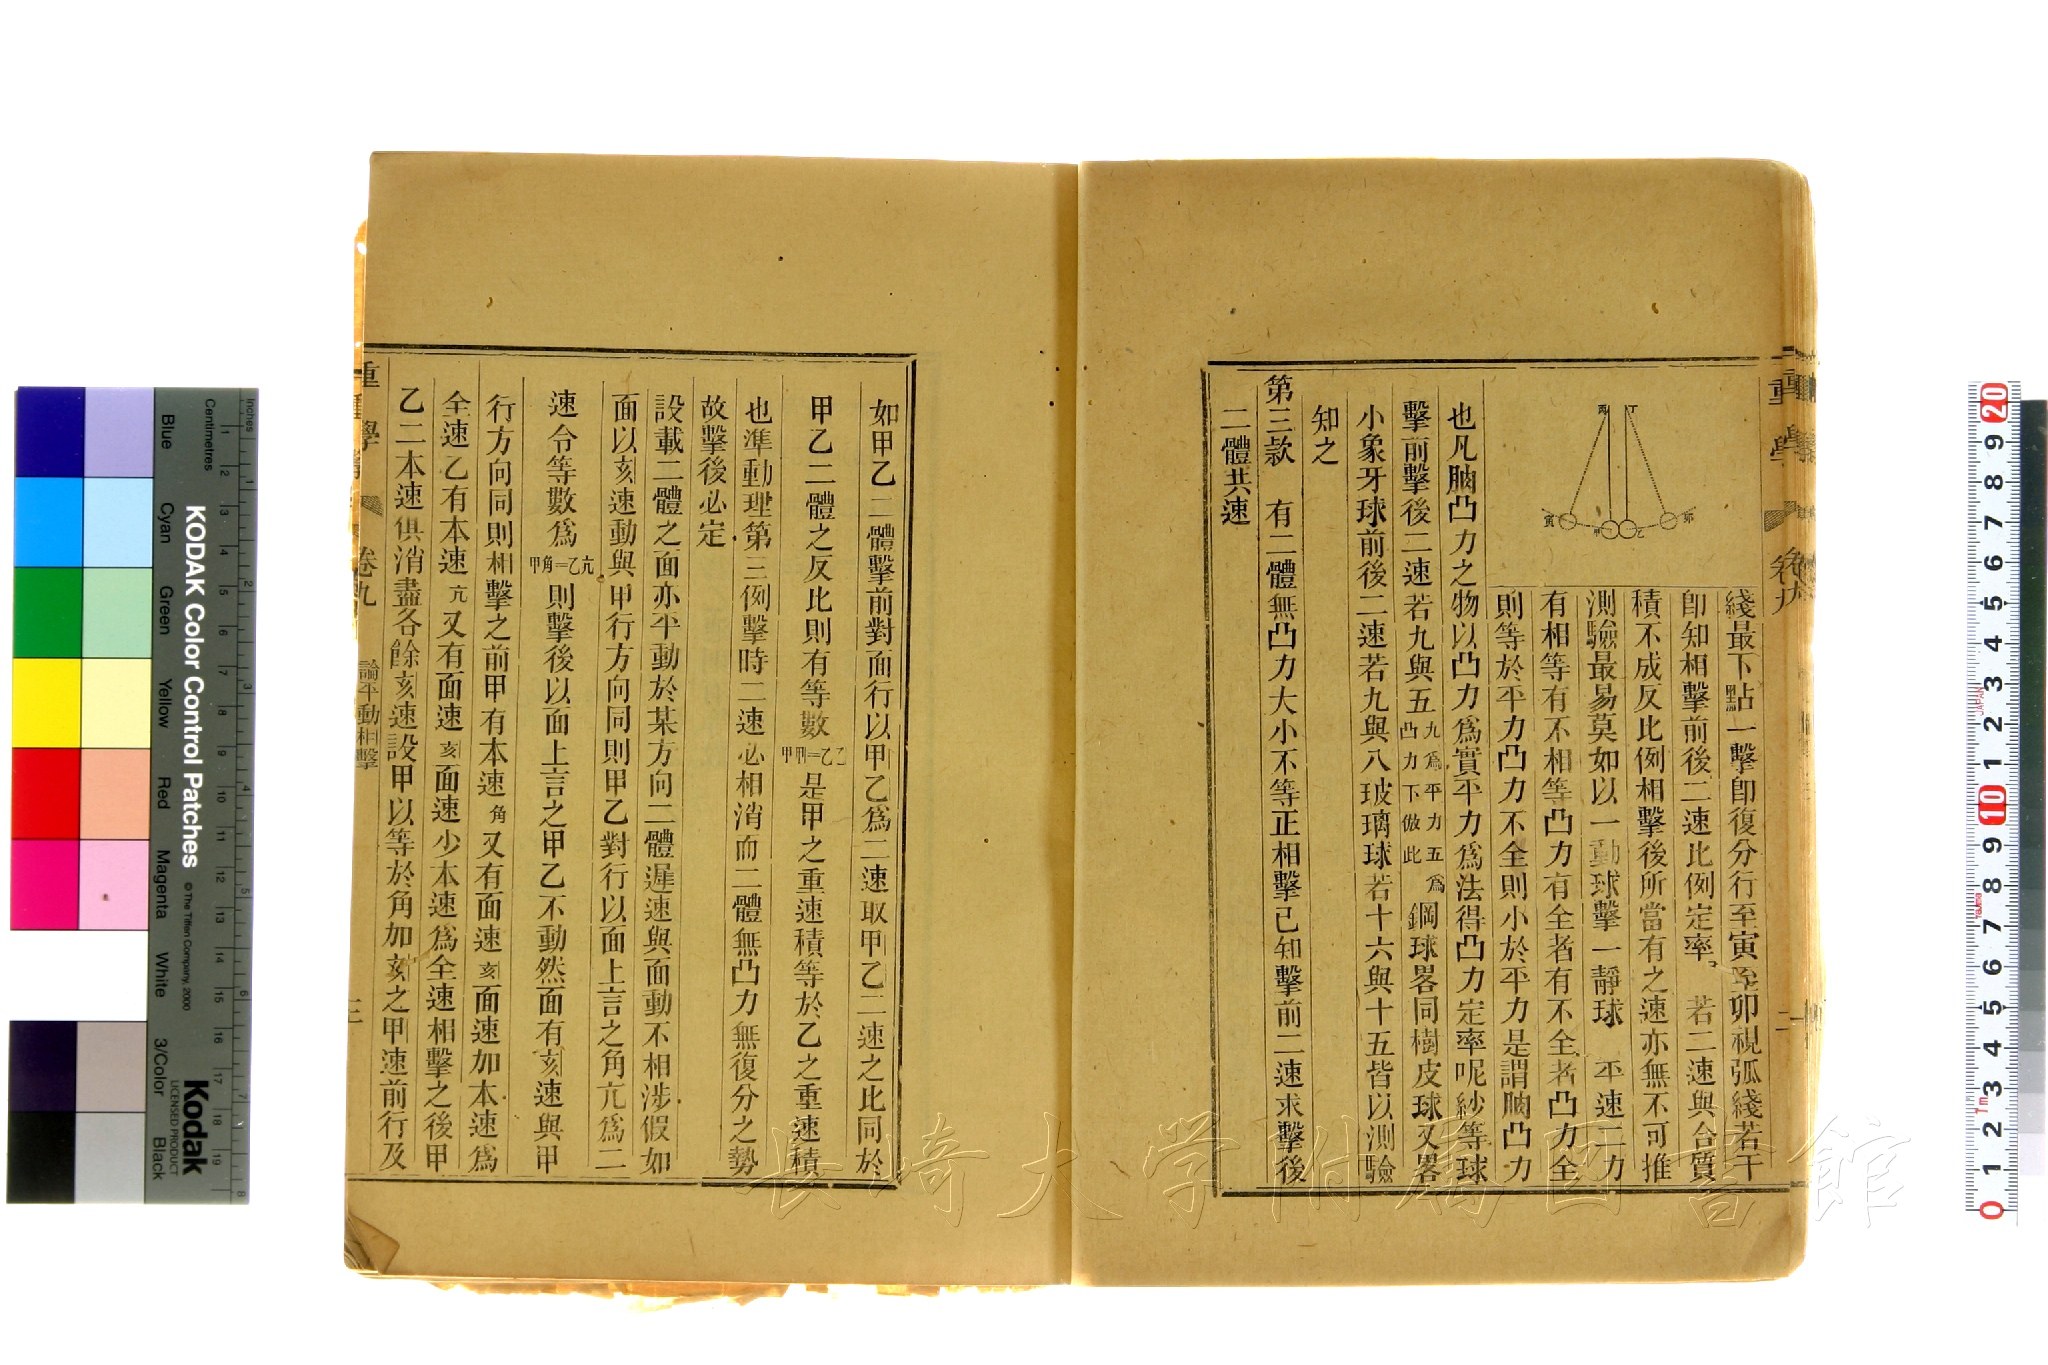 重學
卷九
二
丙 丁
寅 甲 乙 卯
綫最下點一擊卽復分行至寅至卯視弧綫若干
卽知相擊前後二速比例定率。若二速與合質
積不成反比例相擊後所當有之速亦無不可推
測驗最易莫如以一動球擊一靜球 平速二力
有相等有不相等凸力有全者有不全者凸力全
則等於平力凸力不全則小於平力是謂朒凸力
也凡朒凸力之物以凸力爲實平力爲法得凸力定率呢紗等球
擊前擊後二速若九與五九爲平力五爲凸力下倣此鋼球畧同樹皮球又畧
小象牙球前後二速若九與八玻璃球若十六與十五皆以測驗
知之
第三款 有二體無凸力大小不等正相擊已知擊前二速求擊後
二體共速
如甲乙二體擊前對面行以甲乙爲二速取甲乙二速之比同於
甲乙二體之反比則有等數甲甲=乙乙是甲之重速積等於乙之重速積
也準動理第三例擊時二速必相消而二體無凸力無復分之勢
故擊後必定。
設載二體之面亦平動於某方向二體遲速與面動不相涉假如
面以亥速動與甲行方向同則甲乙對行以面上言之角亢爲二
速令等數爲甲角=乙亢則擊後以面上言之甲乙不動然面有亥速與甲
行方向同則相擊之前甲有本速角又有面速亥面速加本速爲
全速乙有本速亢又有面速亥面速少本速爲全速相擊之後甲
乙二本速俱消盡各餘亥速設甲以等於角加亥之甲速前行及
重學
卷九
論平動相擊
三
長崎大学附属図書館
KODAK Color Control Patches
© The Tiffen Company, 2000
Kodak
LICENSED PRODUCT
Inches
Centimetres
Blue
Cyan
Green
Yellow
Red
Magenta
White
3/Color
Black
JAPAN